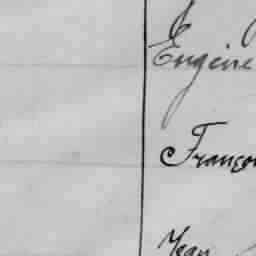 Eugène
Franço
Jean